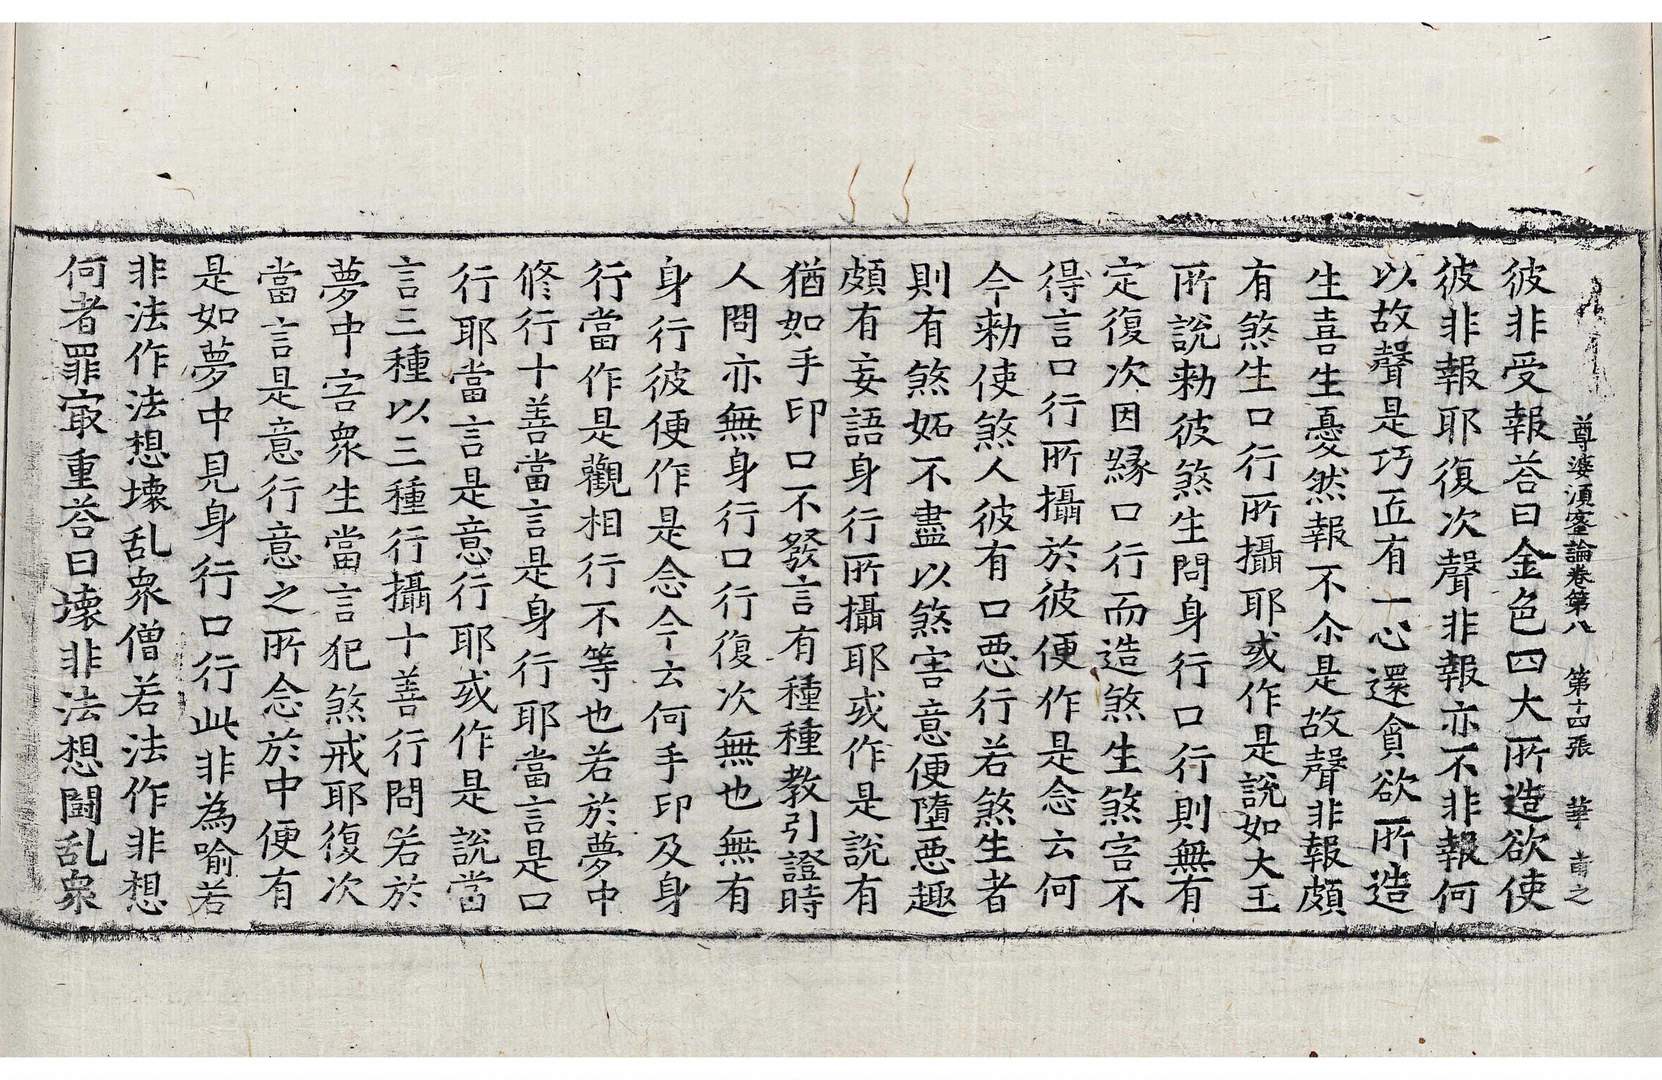 尊婆湏蜜論卷第八　第十四張　華
彼非受報荅曰金色四大所造欲使
彼非報耶復次聲非報亦不非報何
以故聲是巧匠有一心還貪欲所造
生喜生憂然報不尒是故聲非報頗
有煞生口行所攝耶或作是說如大王
所說勑彼煞生問身行口行則無有
定復次因緣口行而造煞生煞害不
得言口行所攝於彼便作是念云何
今勑使煞人彼有口惡行若煞生者
則有煞妬不盡以煞害意便墮惡趣
頗有妄語身行所攝耶或作是說有
猶如手印口不發言有種種教引證時
人問亦無身行口行復次無也無有
身行彼便作是念今云何手印及身
行當作是觀相行不等也若於夢中
修行十善當言是身行耶當言是口
行耶當言是意行耶或作是說當
言三種以三種行攝十善行問若於
夢中害衆生當言犯煞戒耶復次
當言是意行意之所念於中便有
是如夢中見身行口行此非為喻若
非法作法想壞乱衆僧若法作非想
何者罪㝡重荅曰壞非法想鬪乱衆